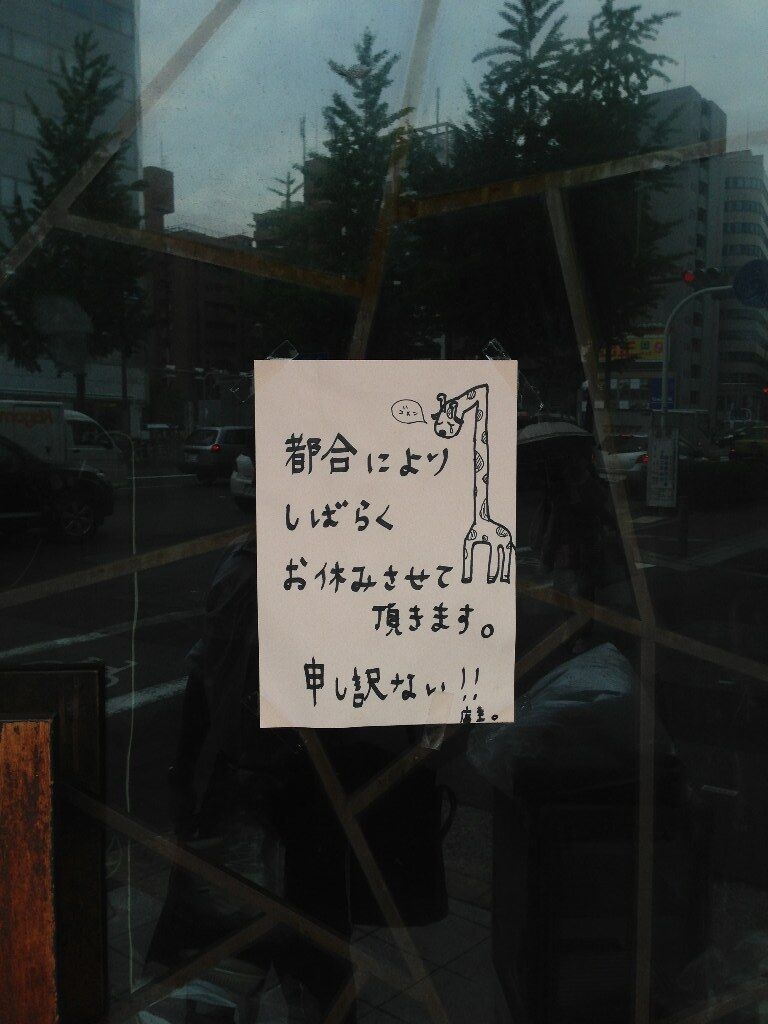 ゴメン
都合により
しばらく
お休みさせて
頂きます。
申し訳ない!!
店主。